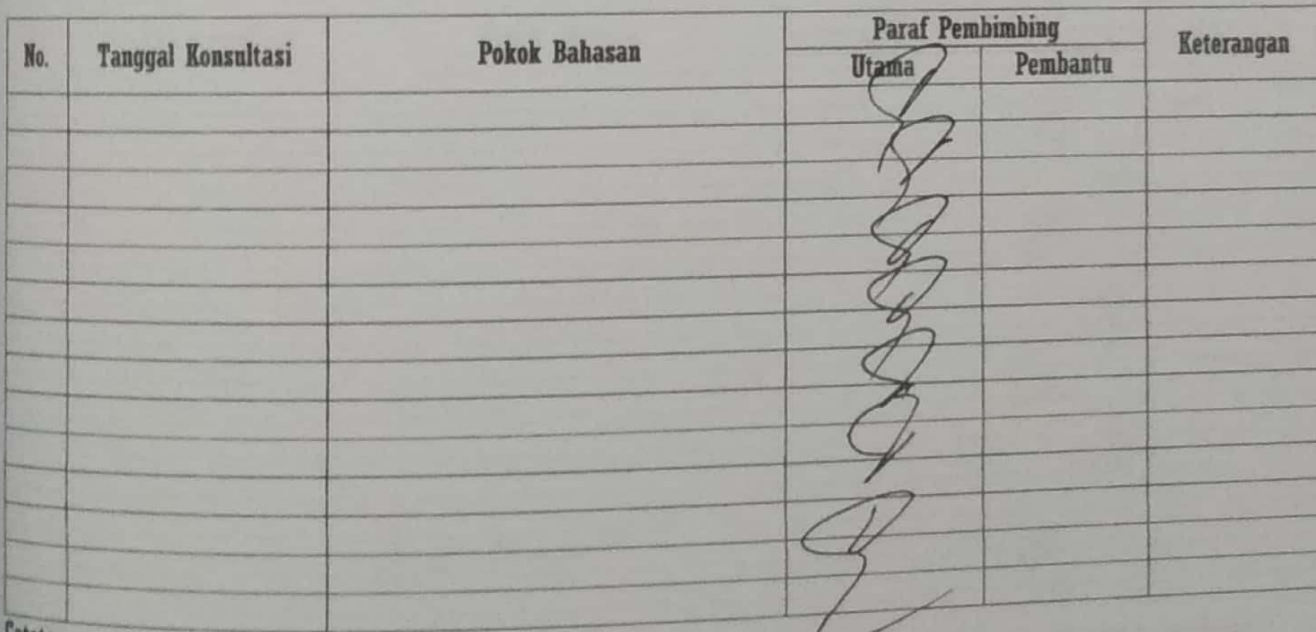 No. Tanggal Konsultasi Pokok Bahasan Paraf Pembimbing Keterangan
Utama Pembantu